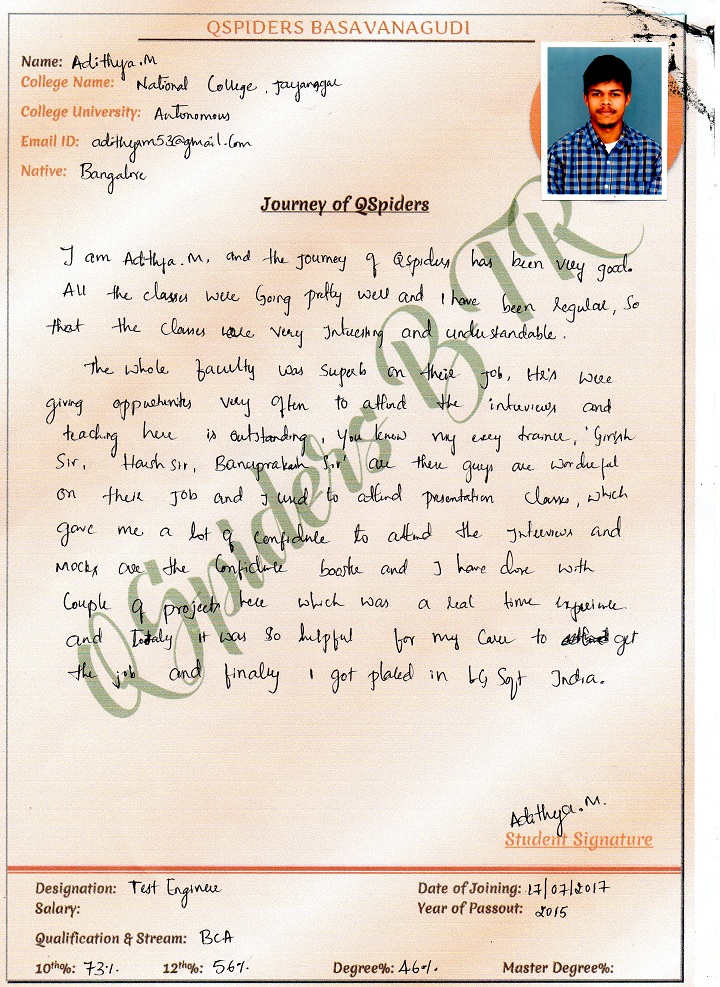 QSPIDERS BASAVANAGUDI
Name: Adithya.M
College Name: National College, Jayanagar
College University: Autonomous
Email ID: adithyam53@gmail.com
Native: Bangalore
Journey of QSpiders
I am Adithya.M, and the journey of Qspiders has been very good.
All the classes were Going pretty well and I have been regular, So
that the classes were very Interesting and understandable.
The whole faculty was Superb on their job, He's were
giving oppurtunites very often to attend the interviews and
teaching here is outstanding, You know my every trainer, 'Girish
Sir, Harish Sir, Banuprakash Sir' are these guys are wonderful
on their JOB and I used to attend presentation classes, which
gave me a lot of confidence to attend the Interviews and
Mocks are the Confidence booster and I have done with
Couple of projects here which was a real time experience
and Totaly it was so helpful for my career to get
the job and finally I got placed in LG Soft India.
QSpiders BTR
Adithya.M.
Student Signature
Designation: Test Engineer
Date of Joining: 17/07/2017
Salary:
Year of Passout: 2015
Qualification & Stream: BCA
10th%: 73%. 12th%: 56%. Degree%: 46%. Master Degree%: